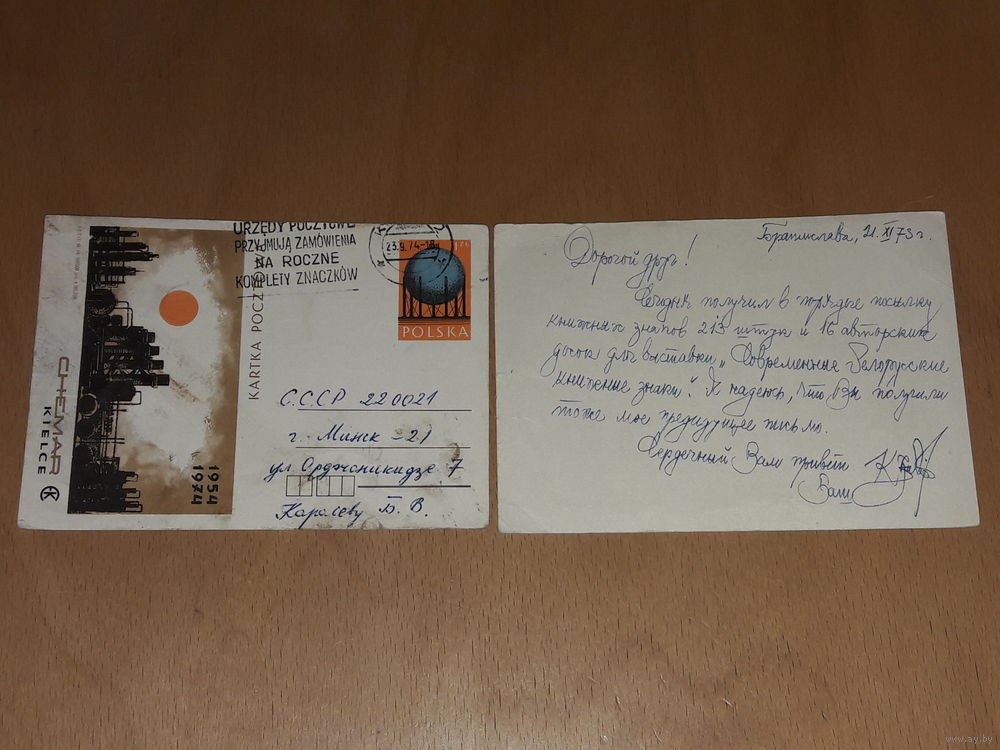 URZĘDY POCZTOWE
PRZYJMUJĄ ZAMÓWIENIA
NA ROCZNE
KOMPLETY ZNACZKÓW
23.9.74
POLSKA
KARTKA POCZTOWA
CHEMAR
KIELCE
1954
1974
С.С.С.Р 220021
г. Минск -21
ул Орджоникидзе 7
Каролеву Б. В.
Братислава, 21. XI 73 г.
Дорогой друг!
Сегодня получил в порядке посылку
книжных знаков 213 штук и 16 авторских
досок для выставки „Современные Белорусские
книжные знаки". Я надеюсь, что Вы получили
тоже мое предидущее письмо.
Сердечный Вам привет
Ваш
www.ay.by